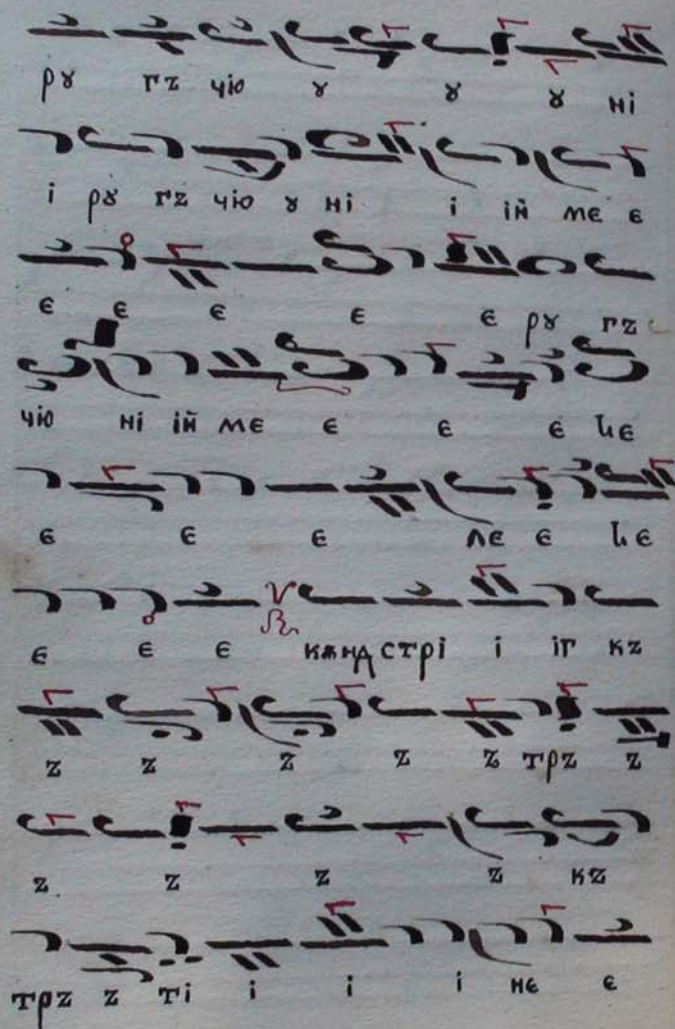 рꙋ гъ чїю ꙋ ꙋ ꙋ нї
і рꙋ гъ чїю ꙋ нї і ій ме е
е е е е е рꙋ гъ
чїю нї ій ме е е е
е е е ле е
е е е кѫнд стрі і іг къ
ъ ъ ъ ъ ъ тръ ъ
ъ ъ ъ ъ къ
тръ ъ ті і і і не е